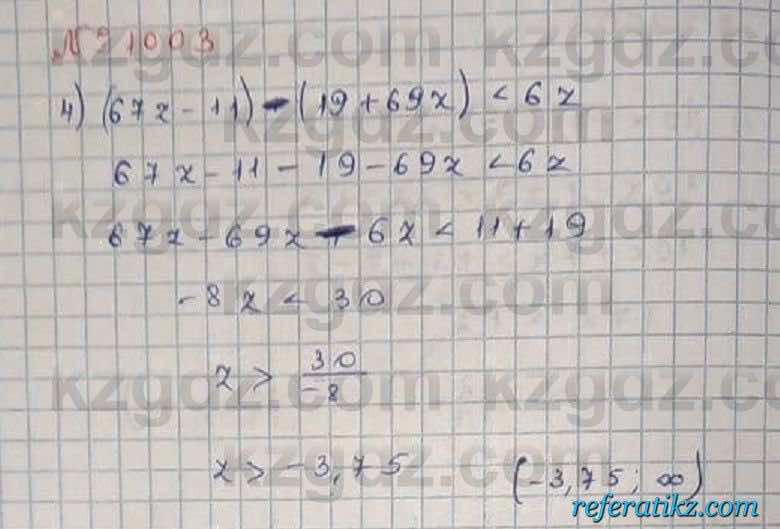 № 21003
4) (67x - 11) - (19 + 69x) < 6x
67x - 11 - 19 - 69x < 6x
67x - 69x - 6x < 11 + 19
-8x < 30
x > 30/-8
x > -3,75 (-3,75; ∞)
kzgdz.com
referatikz.com